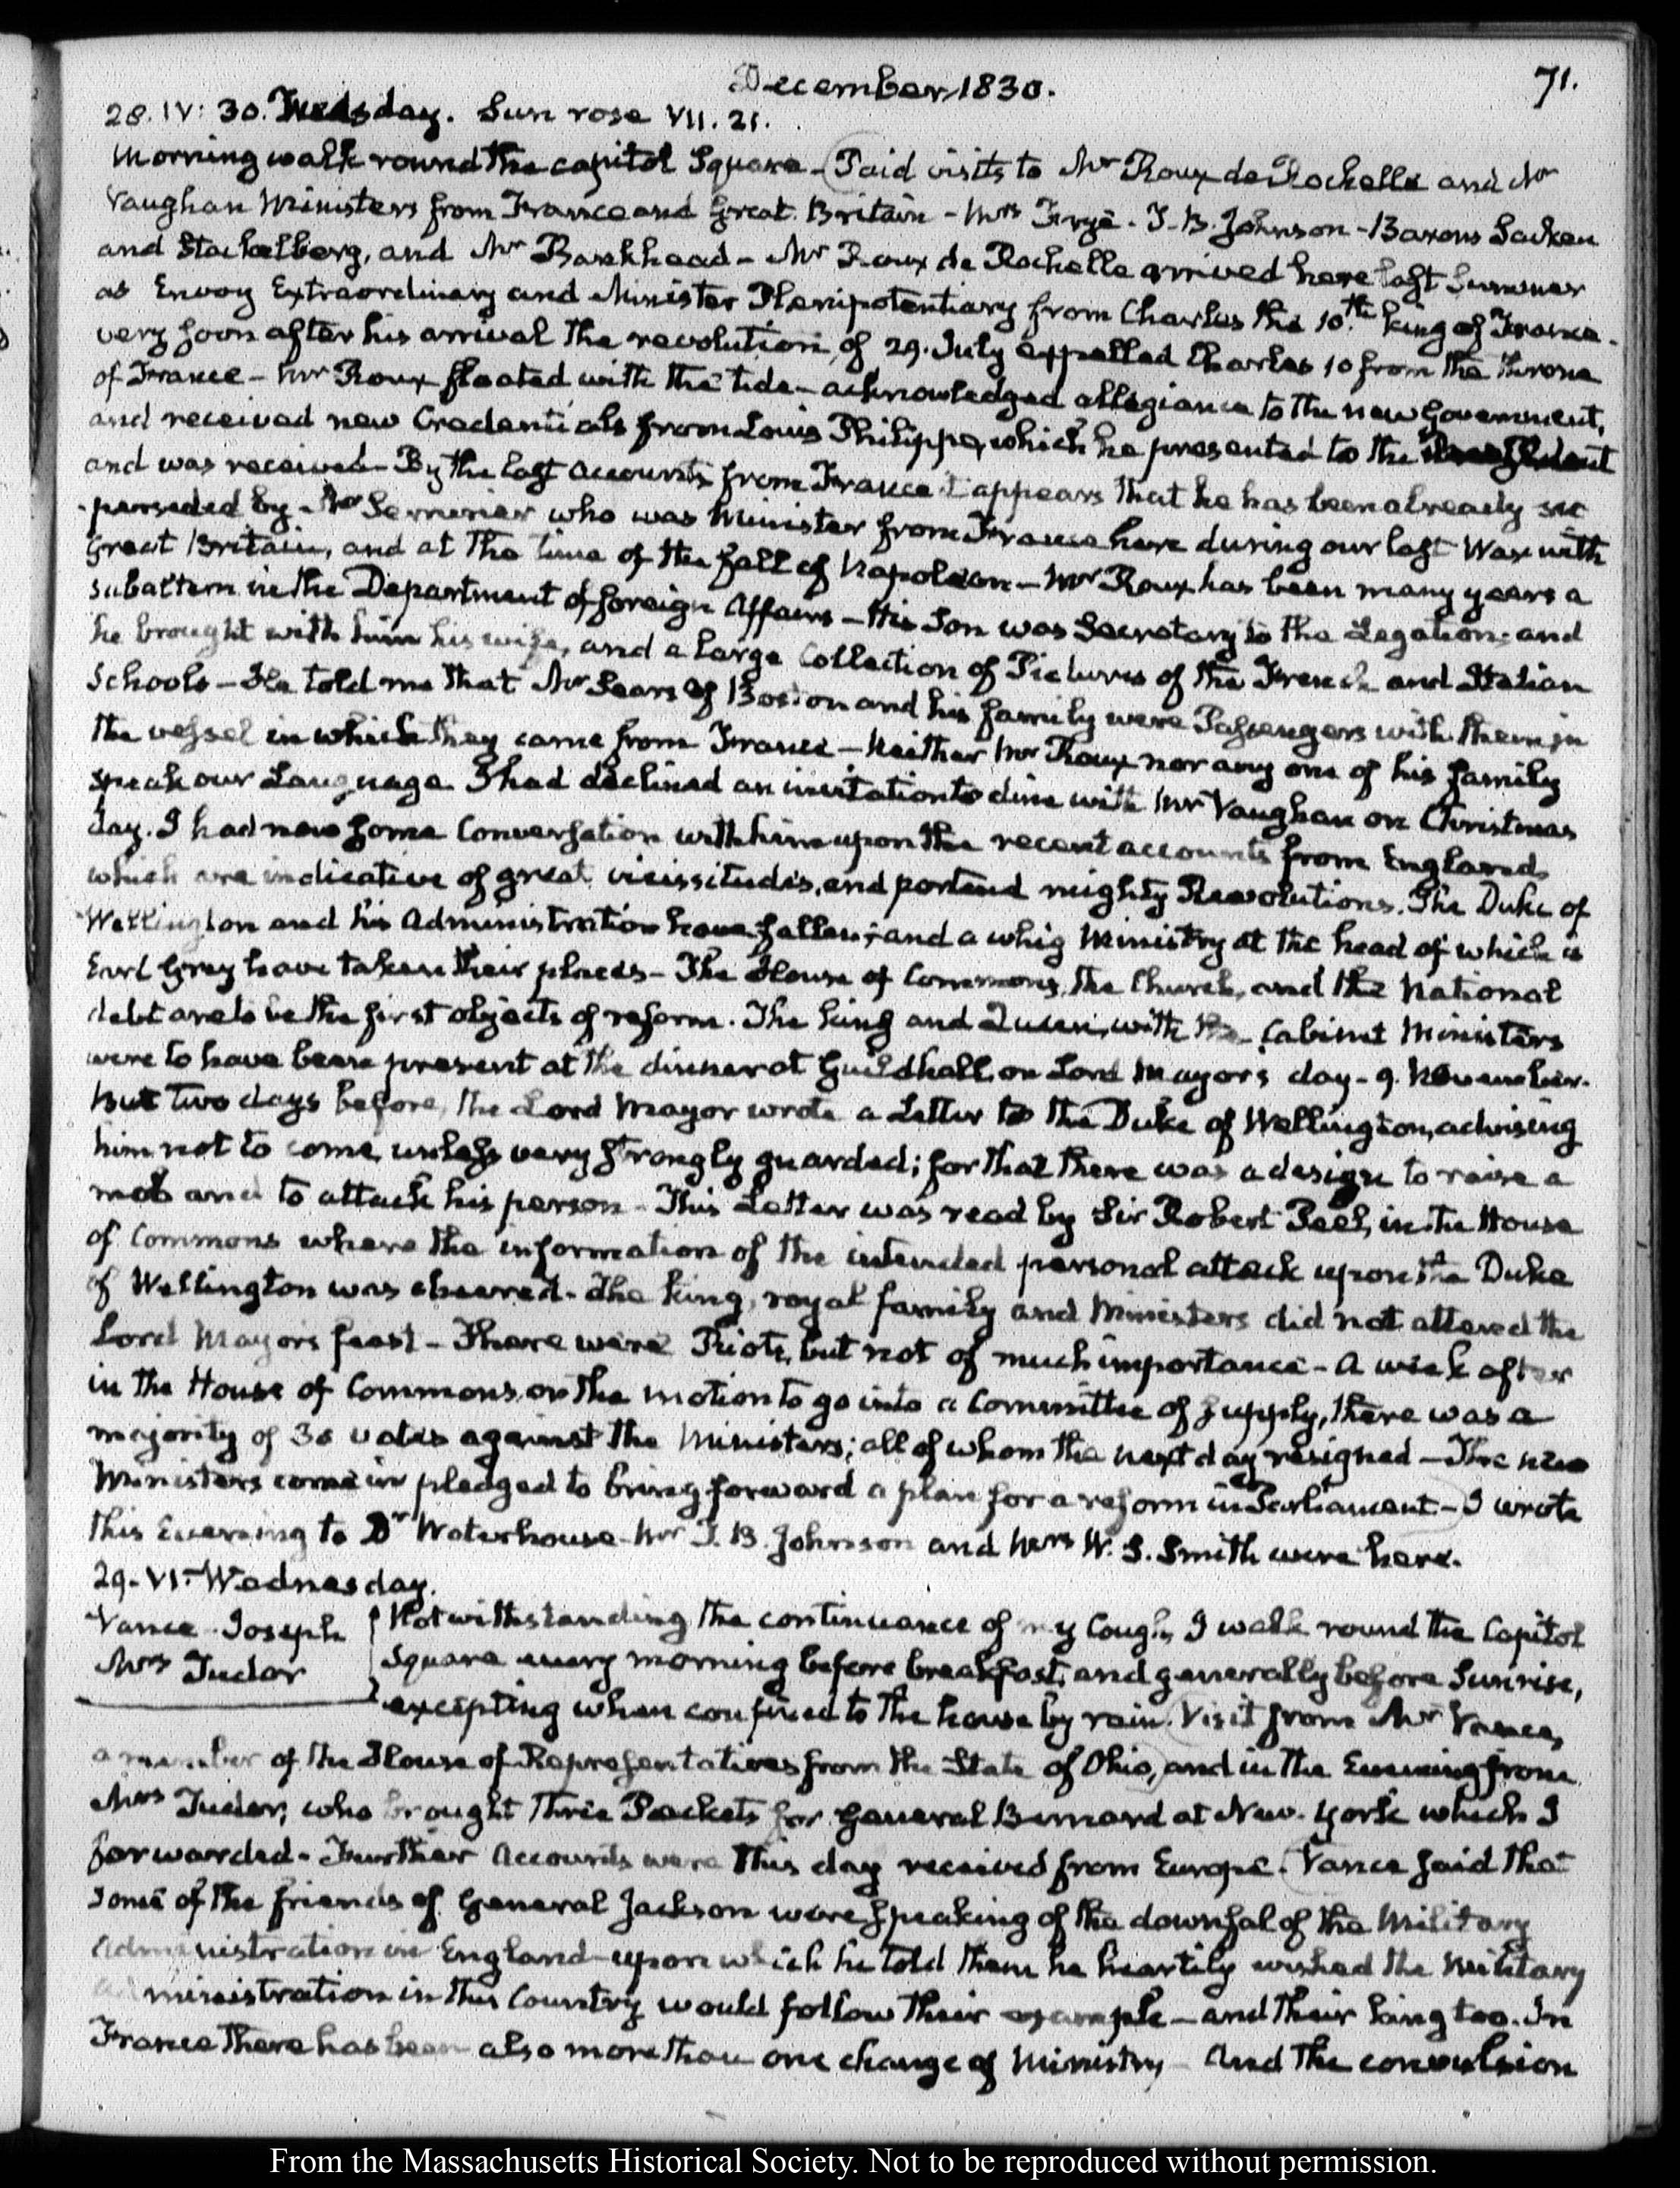 December 1830.
71.
28. IV: 30. Tuesday. Sun rose VII. 21.
Morning walk round the Capitol Square. Paid visits to Mr Roux de Rochelle and Mr
Vaughan Ministers from France and Great Britain - Mrs Frye - T. B. Johnson - Barons Sacken
and Stackelberg, and Mr Bankhead - Mr Roux de Rochelle arrived here last Summer
as Envoy Extraordinary and Minister Plenipotentiary from Charles the 10th. King of France.
very soon after his arrival the revolution of 29. July expelled Charles 10 from the throne
of France - Mr Roux floated with the tide - acknowledged allegiance to the new Government,
and received new Credentials from Louis Philippe, which he presented to the President
and was received - By the last accounts from France it appears that he has been already su-
perseded by Mr Serrurier who was Minister from France here during our last War with
Great Britain, and at the time of the fall of Napoleon - Mr Roux has been many years a
subaltern in the Department of foreign Affairs - His Son was Secretary to the Legation; and
he brought with him his wife, and a large Collection of Pictures of the French and Italian
Schools - He told me that Mr Sears of Boston and his family were Passengers with them in
the vessel in which they came from France - Neither Mr Roux nor any one of his family
speak our Language. I had declined an invitation to dine with Mr Vaughan on Christmas
day. I had now some Conversation with him upon the recent accounts from England,
which are indicative of great vicissitudes, and portend mighty Revolutions. The Duke of
Wellington and his Administration have fallen; and a whig Ministry at the head of which is
Earl Grey have taken their places - The House of Commons, the Church, and the National
debt are to be the first objects of reform. The King and Queen, with the Cabinet Ministers
were to have been present at the dinner at Guildhall on Lord Mayors day - 9. November.
But two days before, the Lord Mayor wrote a Letter to the Duke of Wellington, advising
him not to come, unless very strongly guarded; for that there was a design to raise a
mob and to attack his person - This Letter was read by Sir Robert Peel, in the House
of Commons where the information of the intended personal attack upon the Duke
of Wellington was cheered - The King, royal family and Ministers did not attend the
Lord Mayors feast - There were Riots, but not of much importance - A week after
in the House of Commons on the motion to go into a Committee of supply, there was a
majority of 30 votes against the Ministers; all of whom the next day resigned - The new
Ministers come in pledged to bring forward a plan for a reform in Parliament - I wrote
this Evening to Dr Waterhouse - Mr T. B. Johnson and Mrs W. S. Smith were here.
29. VI. Wednesday.
Vance Joseph
Mrs Tudor
Notwithstanding the continuance of my Cough, I walk round the Capitol
Square every morning before breakfast, and generally before Sunrise,
excepting when confined to the house by rain. Visit from Mr Vance,
a member of the House of Representatives from the State of Ohio, and in the Evening from
Mrs Tudor, who brought three Packets for General Bernard at New-York which I
forwarded - Further Accounts were this day received from Europe. Vance said that
some of the friends of General Jackson were speaking of the downfal of the Military
Administration in England - upon which he told them he heartily wished the Military
administration in this Country would follow their example - and their king too. In
France there has been also more than one change of Ministry - And the convulsion
From the Massachusetts Historical Society. Not to be reproduced without permission.